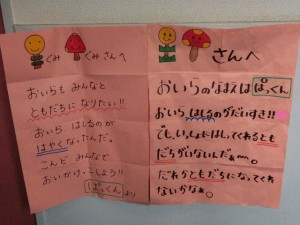 ぐみ ぐみさんへ
おいらも みんなと
ともだちに なりたい!!
おいら はしるのが
はやく なったんだ。
こんど みんなで
おいかけっこしよう!!
ぱっくん より
さんへ
おいらのなまえは ぱっくん
おいら はしるのがだいすき!!
でも、いっしょにはしってくれるとも
だちがいないんだぁ〜。
だれかともだちになってくれ
ないかなぁ。